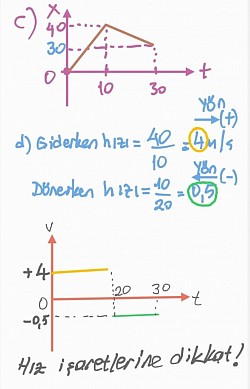 c) x
40
30
0 10 30 t
yön
→(+)
d) Giderken hızı = 40/10 = 4 m/s
yön
←(-)
Dönerken hızı = 10/20 = 0,5
v
+4
20 30
0 t
-0,5
Hız işaretlerine dikkat!